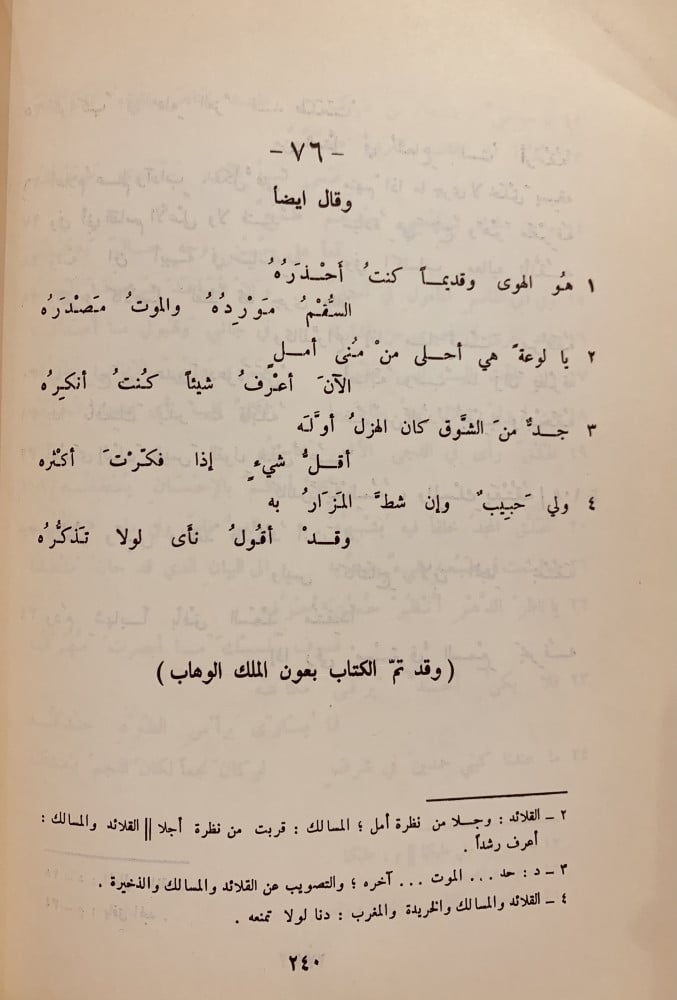 - ٧٦ -
وقال ايضاً
١ هُو الهوى وقديماً كنتُ أَحْذَرُهُ
السُّقْمُ مَوْرِدُهُ والموتُ مَصْدَرُه
٢ يا لوعةً هي أحلى منْ مُنى أملٍ
الآنَ أعْرفُ شيئاً كُنتُ أنكِرُه
٣ جدٌّ منَ الشَّوق كان الهزلُ أوَّلَه
أقلُّ شيءٍ إذا فكّرْتَ أكثره
٤ ولي حَبِيبٌ وإن شطَّ المَزَارُ به
وقدْ أقُولُ نأَى لولا تَذَكُّرُه
( وقد تمّ الكتاب بعون الملك الوهاب )
٢ - القلائد : وجلا من نظرة أمل ؛ المسالك : قربت من نظرة أجلا || القلائد والمسالك :
أعرف رشداً .
٣ - د : حد ... الموت ... آخره ؛ والتصويب عن القلائد والمسالك والذخيرة .
٤ - القلائد والمسالك والخريدة والمغرب : دنا لولا تمنعه .
٢٤٠